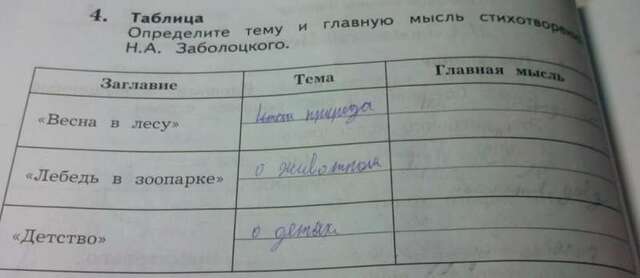 4. Таблица
Определите тему и главную мысль стихотворени
Н.А. Заболоцкого.
Заглавие Тема Главная мысль
«Весна в лесу» природа
«Лебедь в зоопарке» о животном
«Детство» о детях.